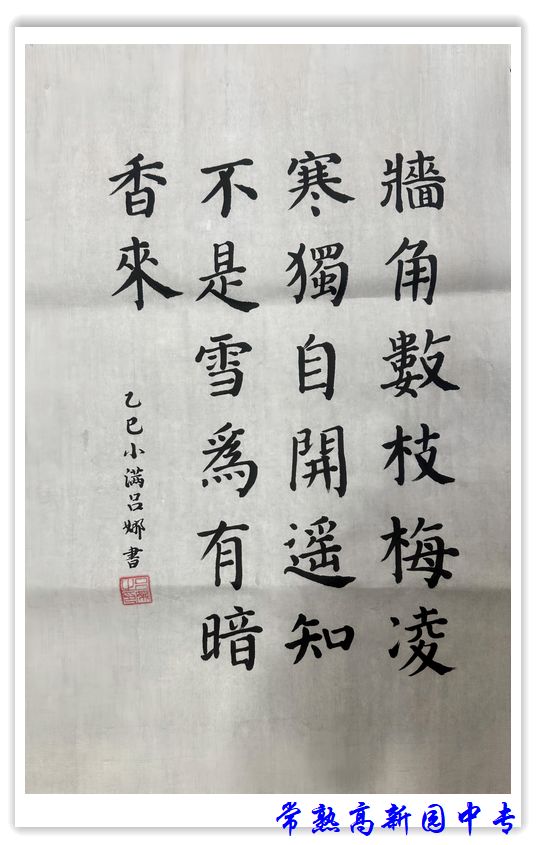 牆角數枝梅凌
寒獨自開遥知
不是雪爲有暗
香來
乙巳小满吕娜書
常熟高新园中专